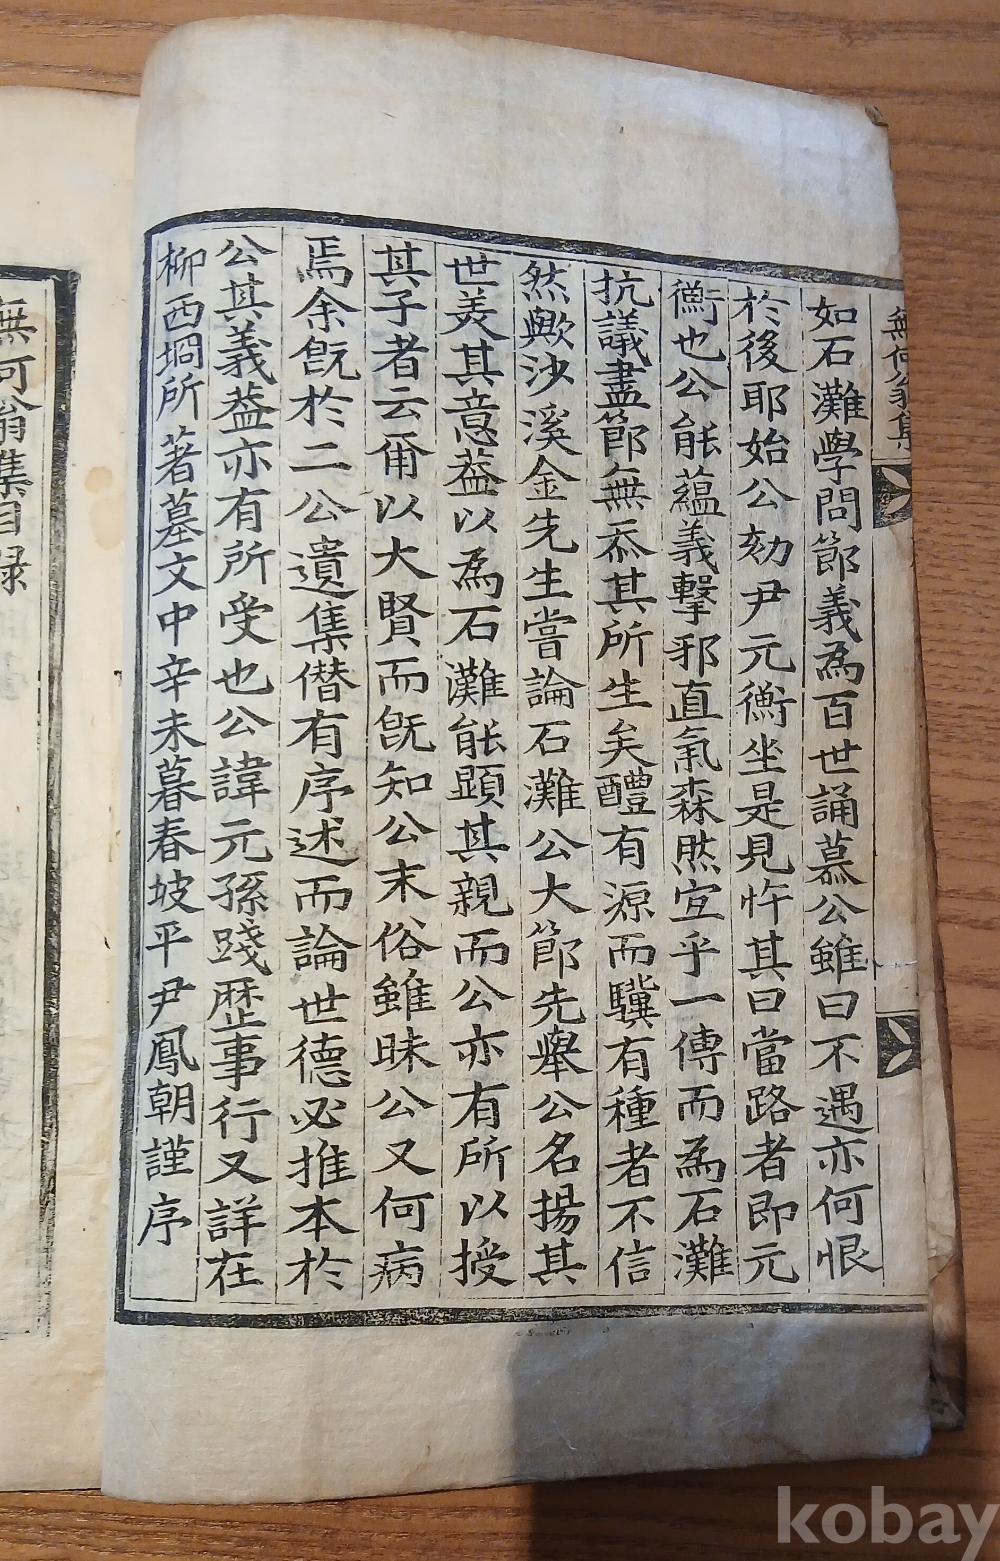 無何翁集序
如石灘學問節義為百世誦慕公雖曰不遇亦何恨
於後耶始公劾尹元衡坐是見忤其曰當路者即元
衡也公能蘊義擊邪直氣森然宜乎一傳而為石灘
抗議盡節無忝其所生矣醴有源而驥有種者不信
然歟沙溪金先生嘗論石灘公大節先舉公名揚其
世美其意葢以為石灘能顯其親而公亦有所以授
其子者云甫以大賢而旣知公末俗雖昧公又何病
焉余旣於二公遺集僭有序述而論世德必推本於
公其義葢亦有所受也公諱元孫踐歷事行又詳在
柳西坰所著墓文中辛未暮春坡平尹鳳朝謹序
無何翁集目録
kobay